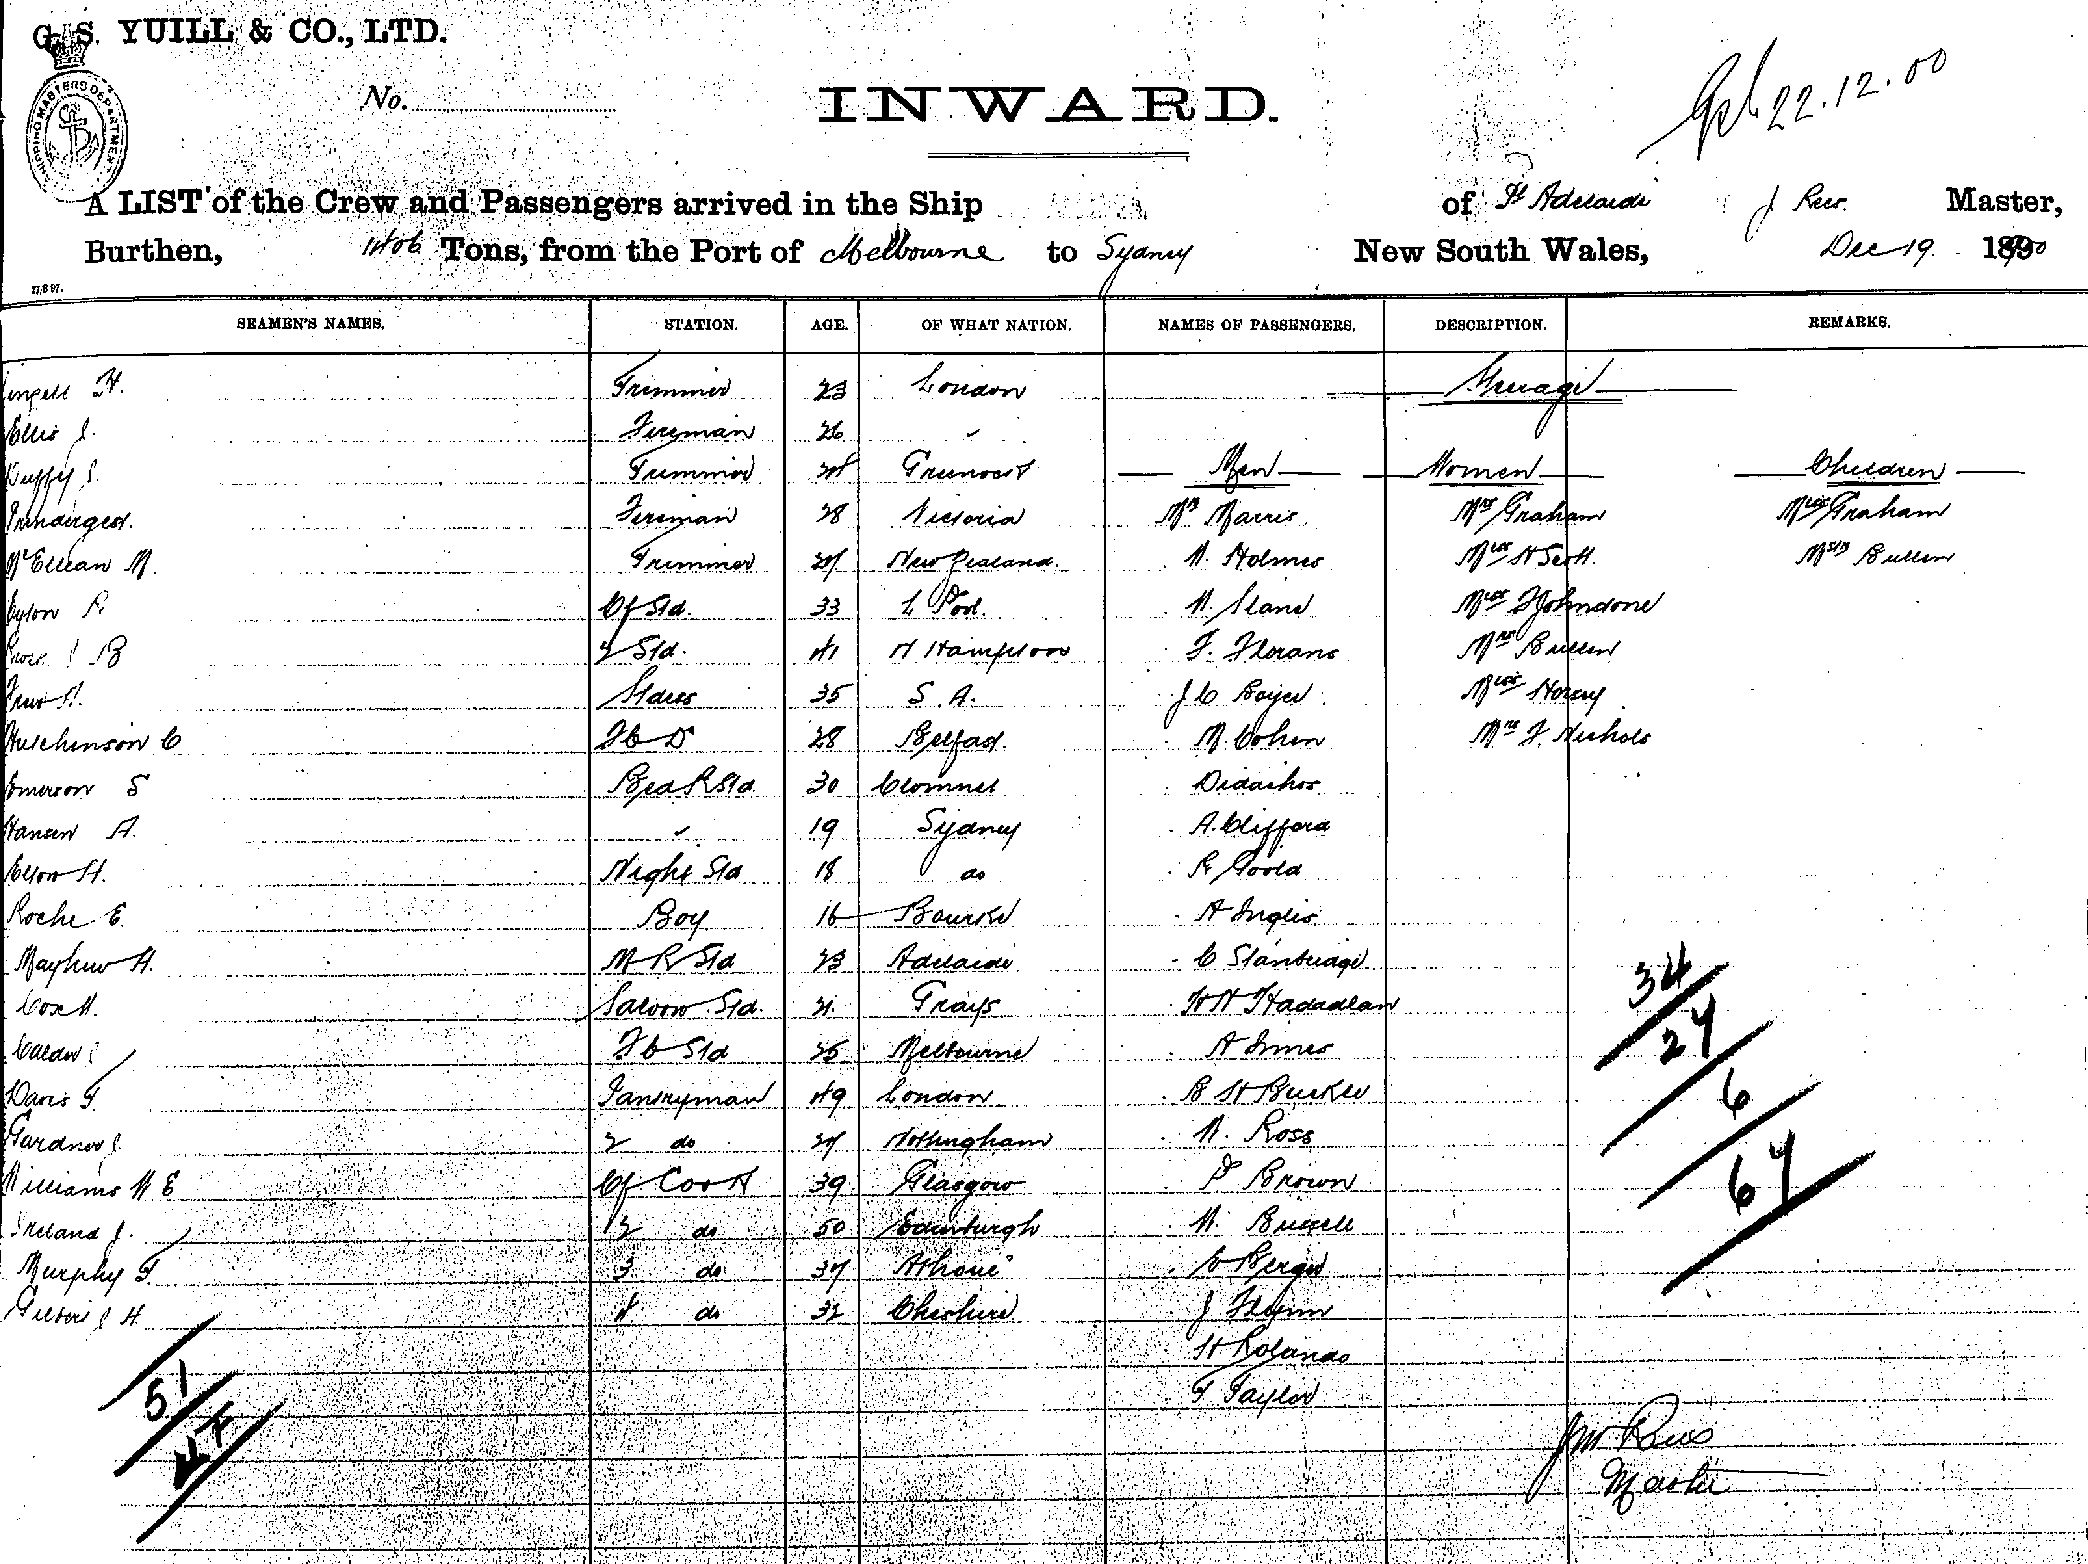 G. S. YUILL & CO., LTD.
No.
INWARD.
22.12.00
SHIPPING MASTERS DEPARTMENT
A LIST of the Crew and Passengers arrived in the Ship of Pt Adelaide J Rees Master,
Burthen, Tons, from the Port of Melbourne to Sydney New South Wales, Dec 19. 1900
SEAMEN'S NAMES. STATION. AGE. OF WHAT NATION. NAMES OF PASSENGERS. DESCRIPTION. REMARKS.
H. Trimmer 23 London Steerage
Ellis J. Fireman 26 "
Duffy J. Trimmer 24 Greenock Men Women Children
Prendergast. Fireman 28 Victoria Mr Harris Mrs Graham Miss Graham
McEllean M. Trimmer 24 New Zealand. W. Holmes Miss H Scott. Mstr Bullen
R Cf Std. 33 L Pool. W. Slane Miss F Johndone
B 2 Std. 41 N Hampton F. Florans Mrs Bullen
H. Stdess 35 S. A. J C Boyer Miss Horey
Hutchinson C F C D 28 Belfast. M. Cohen Mrs F. Nichols
Emerson S Bed R Std 30 Clonmel Didaihos
Hansen A. " 19 Sydney A. Clifford
H. Night Std 18 do R Goold
Roche E Boy 16 Bourke A Inglis
Mayhew H. M R Std 23 Adelaide C Stanbridge
Cox H. Saloon Std. 21. Grays W H Hadadlan
Calder J F C Std 25 Melbourne A Innes
Davis F. Pantryman 49 London B H Buckle
Gardner J. 2 do 24 Nottingham W. Ross
Williams W E Cf Cook 39 Glasgow P Brown
Ireland J. 2 do 50 Edinburgh W. Bussell
Murphy F. 3 do 37 Athone C Berger
Gilbert J H. 4 do 32 Cheshire J Flynn
H Rolands
F Taylor
34
27
6
67
51
47
J W Rees
Master